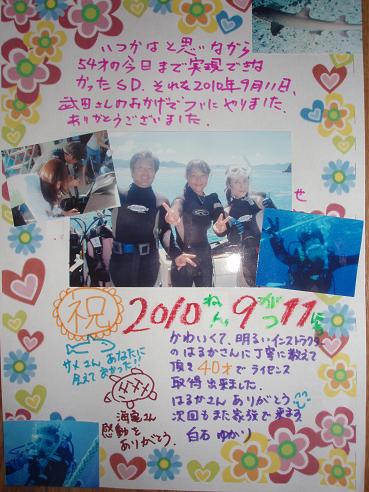 いつかはと思いながら
54才の今日まで実現できな
かったSD. それを2010年9月11日、
武田さんのおかげでついにやりました.
ありがとうございました.
祝
2010ねん9がつ11にち
サメさんあなたに
会えてよかった!!
海亀さん
感動を
ありがとう.
かわいくて、明るいインストラクター
のはるかさんに丁寧に教えて
頂き40才でライセンス
取得出来ました.
はるかさんありがとう
次回もまた家族で来ます
白石ゆかり